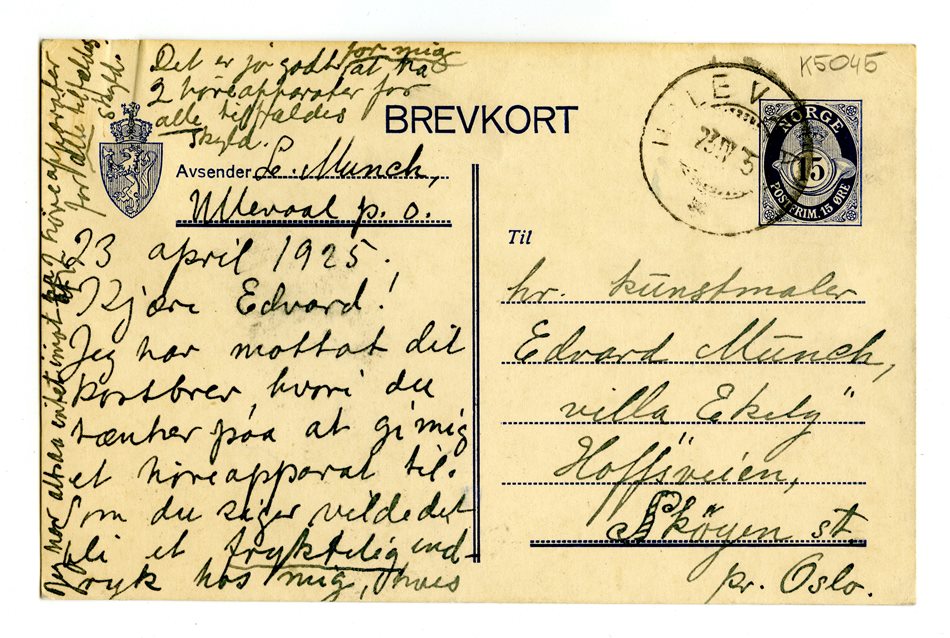 K5045
BREVKORT
Det er jo godt for mig at ha
2 høreapparater for
alle tilfældes
skyld.
Avsender L. Munch,
Ullevaal p. o.
23 april 1925.
Kjære Edvard!
Jeg har mottat dit
kortbrev, hvori du
tænker paa at gi mig
et høreapparat til.
Som du siger vilde det
bli et frygtelig ind-
tryk hos mig, hvis
Jeg har altsaa intet imot ha 2 høreapparater
for alle tilfældes
skyld.
NORGE
15
POSTFRIM. 15 ØRE
23 IV
Til
hr. kunstmaler
Edvard Munch,
"villa Ekely"
Hoffsveien,
Skøyen st.
pr. Oslo.